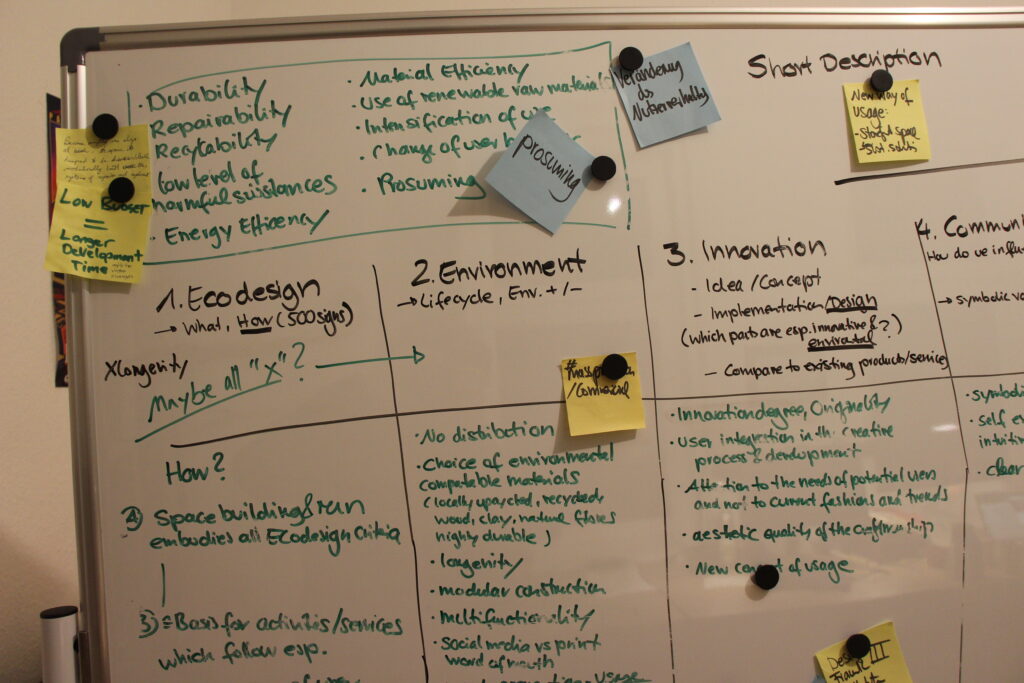 · Durability
Repairability
Recyclability
Low level of
harmful substances
· Energy Efficency
· Material Efficiency
· Use of renewable raw material
· Intensification of use
· Change of user
· Prosuming
Veränderung
des
prosuming
Short Description
New Way of
Usage:
LOW BUDGET
=
Longer
Development
Time
1. Ecodesign
→ What, How (500 signs)
X longevity
Maybe all "X"?
2. Environment
→ Lifecycle, Env. +/-
/Commercial
3. Innovation
- Idea / Concept
- Implementation/Design
(which parts are esp. innovative &
?)
- Compare to existing products/services
4. Communi
How do we influ
→ symbolic va
How?
Space building & run
embodies all Ecodesign Criteria
3) = Basis for activities/services
which follow esp.
· No distribution
· Choice of environmental
compatable materials
(locally upcycled, recycled,
wood, clay, natural fibres
highly durable)
· longevity
· modular construction
· multifunctionality
· social media vs print
word of mouth
usage
· Innovation degree, Originality
· User integration in the creative
process & development
· Attention to the needs of potential users
and not to current fashions and trends
· aesthetic quality of the
· New concept of usage
· symboli
· self ex
intuitiv
· clear
III